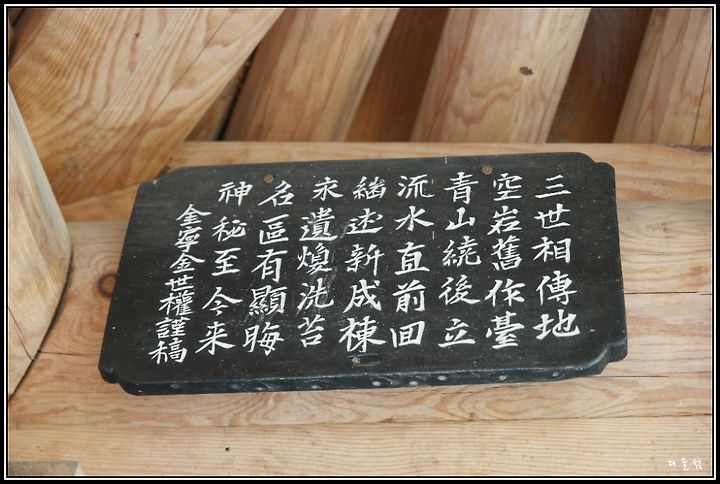 三世相傳地
空岩舊作臺
青山繞後立
流水直前回
継述新成棟
求遺煥洗苔
名區有顯晦
神秘至今来
金寧金世權謹稿